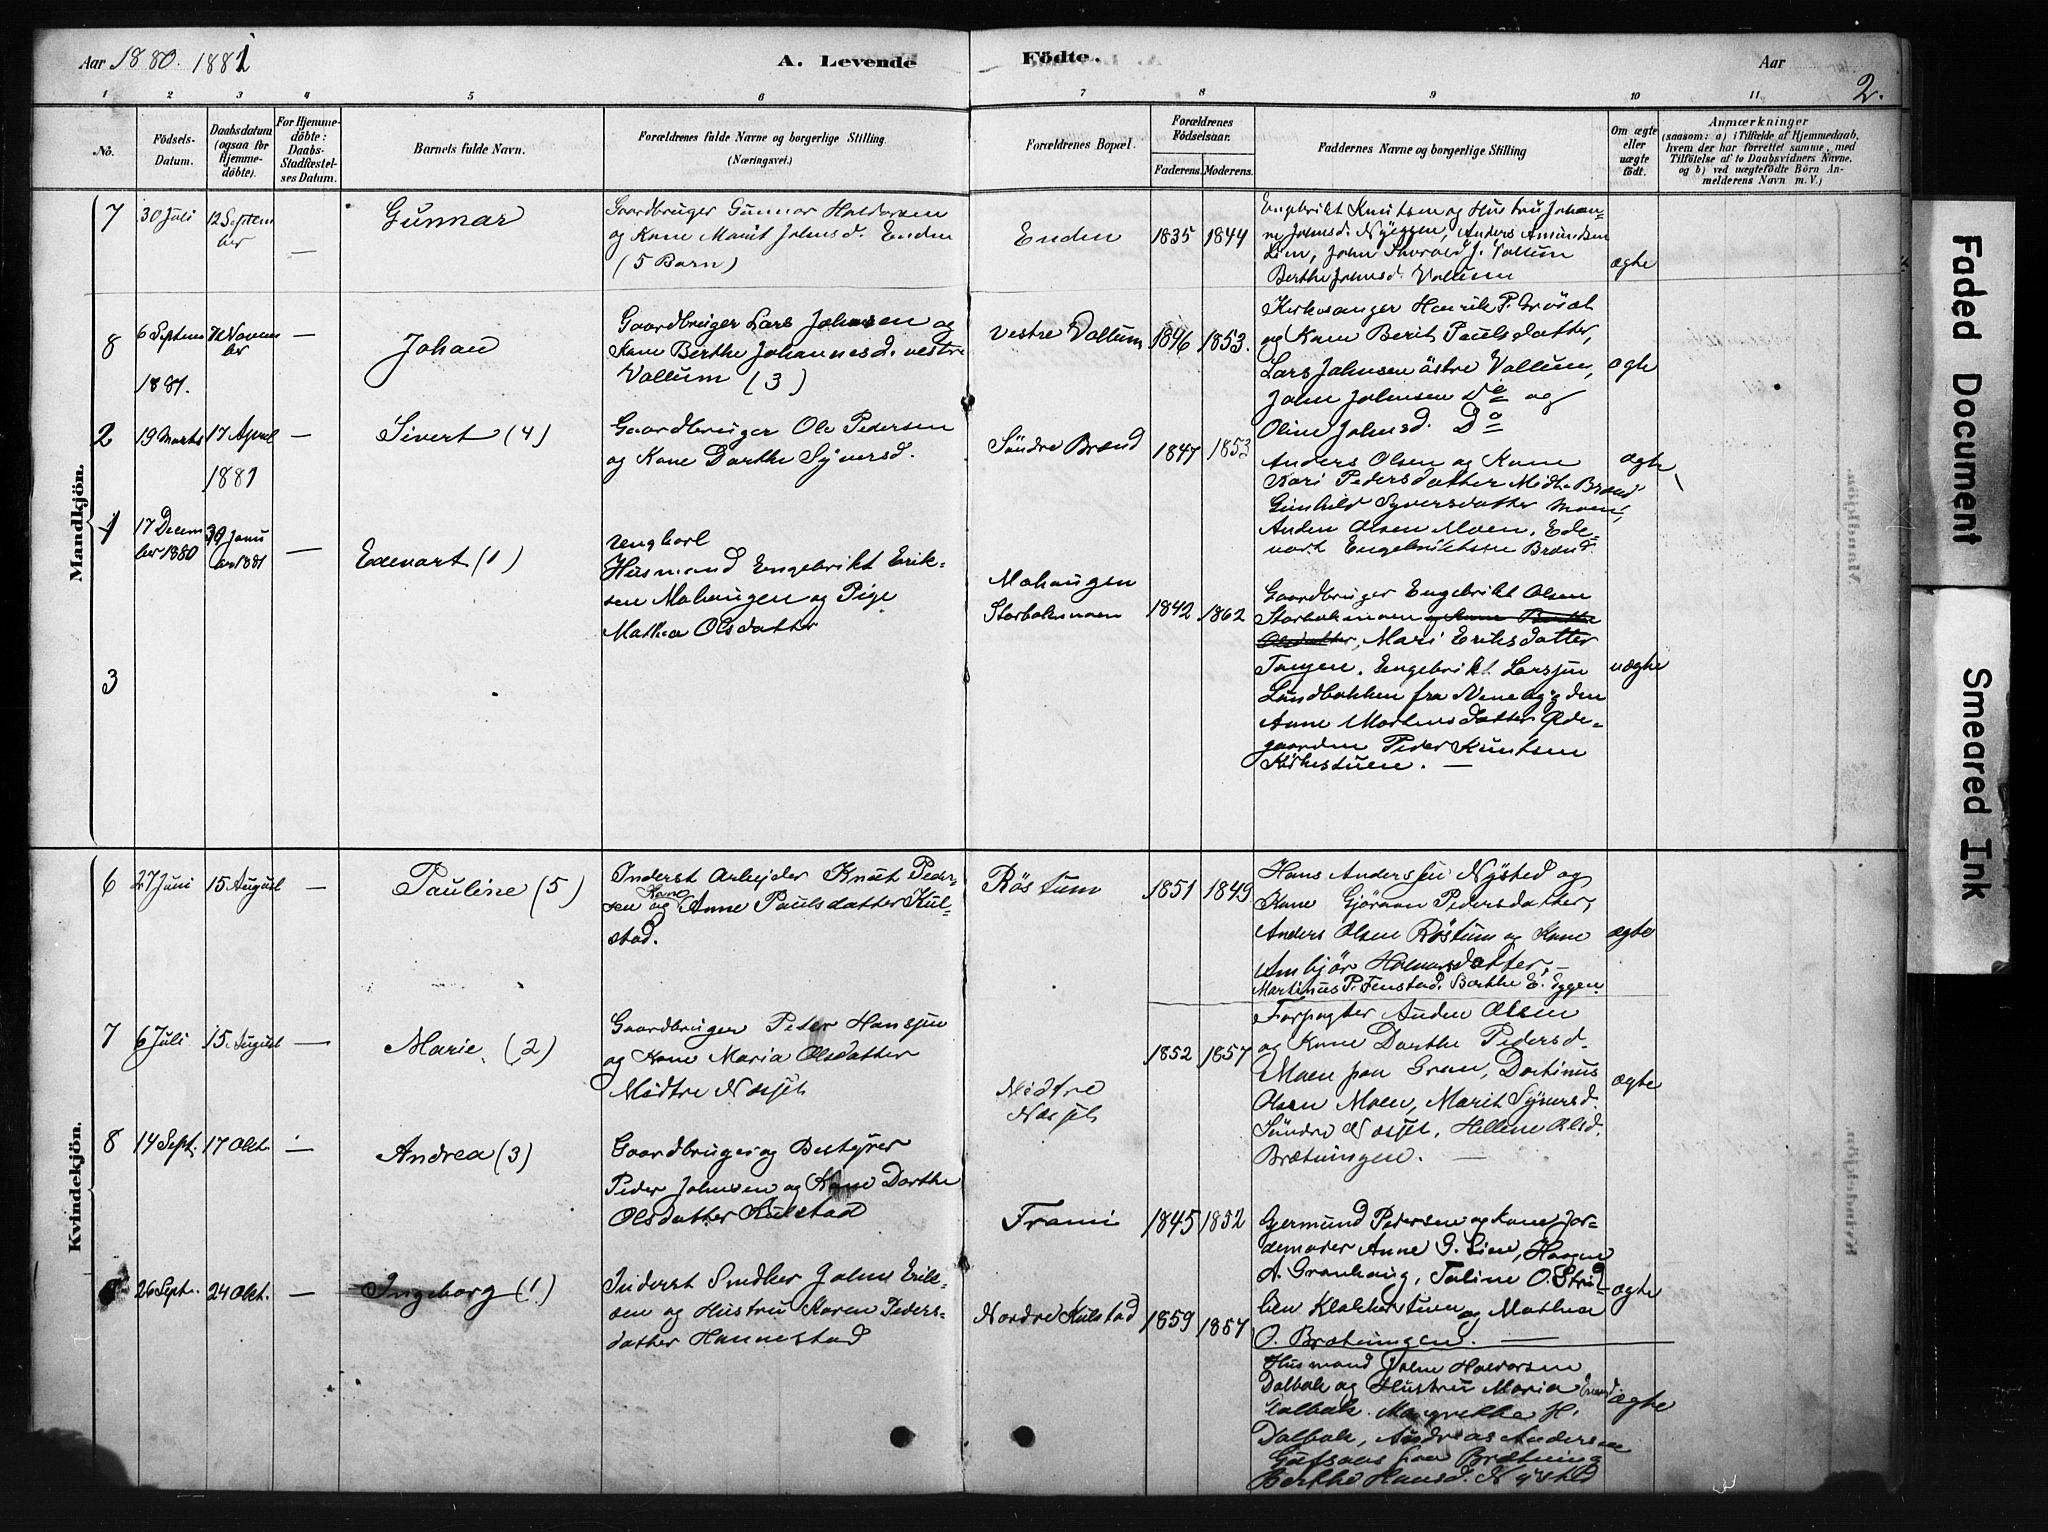 Aar 1880. 1881
A. Levende
Födte.
Aar
2.
1 2 3 4 5 6 7 8 9 10 11
No.
Födsels-
Datum.
Daabsdatum
(ogsaa for
Hjemme-
döbte).
For Hjemme-
döbte:
Daabs-
Stadfæstel-
ses Datum.
Barnets fulde Navn.
Forældrenes fulde Navne og borgerlige Stilling.
(Næringsvei.)
Forældrenes Bopæl.
Forældrenes
Födselsaar.
Faderens.
Moderens.
Faddernes Navne og borgerlige Stilling
Om ægte
eller
uægte
födt.
Anmærkninger
(saasom: a) i Tilfælde af Hjemmedaab,
hvem der har forrettet samme, med
Tilföielse af to Daabsvidners Navne.
og b) ved uægtefödte Börn An-
melderens Navn m. V.)
Mandkjön.
7
30 Juli
12 Septem
ber
—
Gunnar
Gaardbruger Gunnar Haldorsen
og Kone Marit Johnsd. Enden
(5 Barn)
Enden
1835
1844
Engebrikt Knutsen og Hustru Johan-
ne Johnsd. Nyeggen, Anders Amundsen
Lien, John J. Vollum
Berthe Johnsd. Vollum
ægte
8
6 Septem
ber
Novem
ber
—
Johan
Gaardbruger Lars Johnsen og
Kone Berthe Johannesd. vestre
Vollum (3)
Vestre Vollum
1846
1853.
Kirkesanger Henrik P.
og Kone Berit Paulsdatter,
Lars Johnsen östre Vollum,
John Johnsen Do og
Oline Johnsd. Do
ægte
1881.
2
19 Marts
17 April
1881
—
Sivert (4)
Gaardbruger Ole Pedersen
og Kone Dorthe Syversd.
Söndre Brænd
1847
1853
Anders Olsen og Kone
Kari Pedersdatter Midt-Brænd
Gunhild Syversdatter Moen,
Anden Olsen Moen, Ede-
vart Engebriktsen Brænd.
ægte
1
17 Decem
ber 1880
30 Janu
ar 1881
—
Edevart (1)
Ungkarl
Husmand Engebrikt Erik-
sen Mohaugen og Pige
Mathea Olsdatter
Mohaugen
Storbekmoen
1842
1862
Gaardbruger Engebrikt Olsen
Storbekmoen og Kone Berthe
Olsdatter, Mari Eriksdatter
Tangen. Engebrikt Larssen
Lundbakken fra Nenebygden
Anne Mortensdatter Öde-
gaarden Peder Knutsen
Kirkestuen. —
uægte
3
Kvindekjön.
6
27 Juni
15 August
—
Pauline (5)
Inderst Arbejder Knut Peder-
sen og Kone Anne Paulsdatter Kul-
stad.
Röstum
1851
1849
Hans Anderssen Nysted og
Kone Gjöraan Pedersdatter,
Anders Olsen Röstum og Kone
Ambjör Halvorsdatter —
Martinus P. Fenstad. Berthe E. Eggen.
ægte
7
6 Juli
15. August
—
Marie. (2)
Gaardbruger Peter Hanssen
og Kone Maria Olsdatter
Midtre Næsset
Midtre
Næsset
1852
1857
Forpagter Anden Olsen
og Kone Dorthe Pedersd.
Moen paa Gran, Dortinus
Olsen Moen, Marit Syversd.
Söndre Næsset, Hellene Olsd.
Brætningen. —
ægte
8
14 Sept.
17 Okt.
—
Andrea (3)
Gaardbruger og Bestyrer
Peder Johnsen og Kone Dorthe
Olsdatter Kulstad
Frami
1845
1852
Germund Pedersen og Kone Jor-
demoder Anne G. Lien, Haagen
A. Granhaug, Taline O.
Klokkerstuen og Mathea
O. Brætningen. —
ægte
26 Sept.
24 Okt.
—
Ingeborg (1)
Inderst Smedker John Erik-
sen og Hustru Karen Peders-
datter Hannestad
Nordre Kulstad
1859
1857
Husmand John Halvorsen
Dalbak og Hustru Maria
Dalbak. Margrethe H.
Dalbak, Andreas Andersen
paa Brætning
Berthe Hansd. Nysted
ægte
Faded Document
Smeared Ink